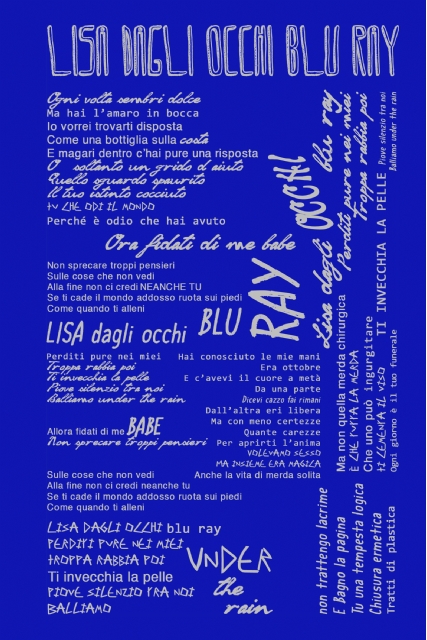 LISA DAGLI OCCHI BLU RAY
Ogni volta sembri dolce
Ma hai l'amaro in bocca
Io vorrei trovarti disposta
Come una bottiglia sulla costa
E magari dentro c'hai pure una risposta
O soltanto un grido d'aiuto
Quello sguardo spaurito
Il tuo istinto cocciuto
tu CHE ODI IL MONDO
Perché è odio che hai avuto
Ora fidati di me babe
Non sprecare troppi pensieri
Sulle cose che non vedi
Alla fine non ci credi NEANCHE TU
Se ti cade il mondo addosso ruota sui piedi
Come quando ti alleni
LISA dagli occhi BLU
RAY
Perditi pure nei miei
Troppa rabbia poi
Ti invecchia la pelle
Piove silenzio tra noi
Balliamo under the rain
Allora fidati di me BABE
Non sprecare troppi pensieri
Sulle cose che non vedi
Alla fine non ci credi neanche tu
Se ti cade il mondo addosso ruota sui piedi
Come quando ti alleni
Hai conosciuto le mie mani
Era ottobre
E c'avevi il cuore a metà
Da una parte
Dicevi cazzo fai rimani
Dall'altra eri libera
Ma con meno certezze
Quante carezze
Per aprirti l'anima
VOLEVAMO SESSO
MA INSIEME ERA MAGICA
Anche la vita di merda solita
LISA DAGLI OCCHI blu ray
PERDITI PURE NEI MIEI
tROPPA RABBIA POI
Ti invecchia la pelle
PIOVE SILENZIO FRA NOI
BALLIAMO
UNDER
the
rain
Lisa dagli OCCHI blu ray
Perditi pure nei miei
Troppa rabbia poi
TI INVECCHIA LA PELLE
Piove silenzio tra noi
Balliamo under the rain
Ma non quella merda chirurgica
È CHE tUttA LA MERDA
Che uno può ingurgitare
tI CEMENtA IL VISO
Ogni giorno è il tuo funerale
non trattengo lacrime
E Bagno la pagina
Tu una tempesta logica
Chiusura ermetica
Tratti di plastica